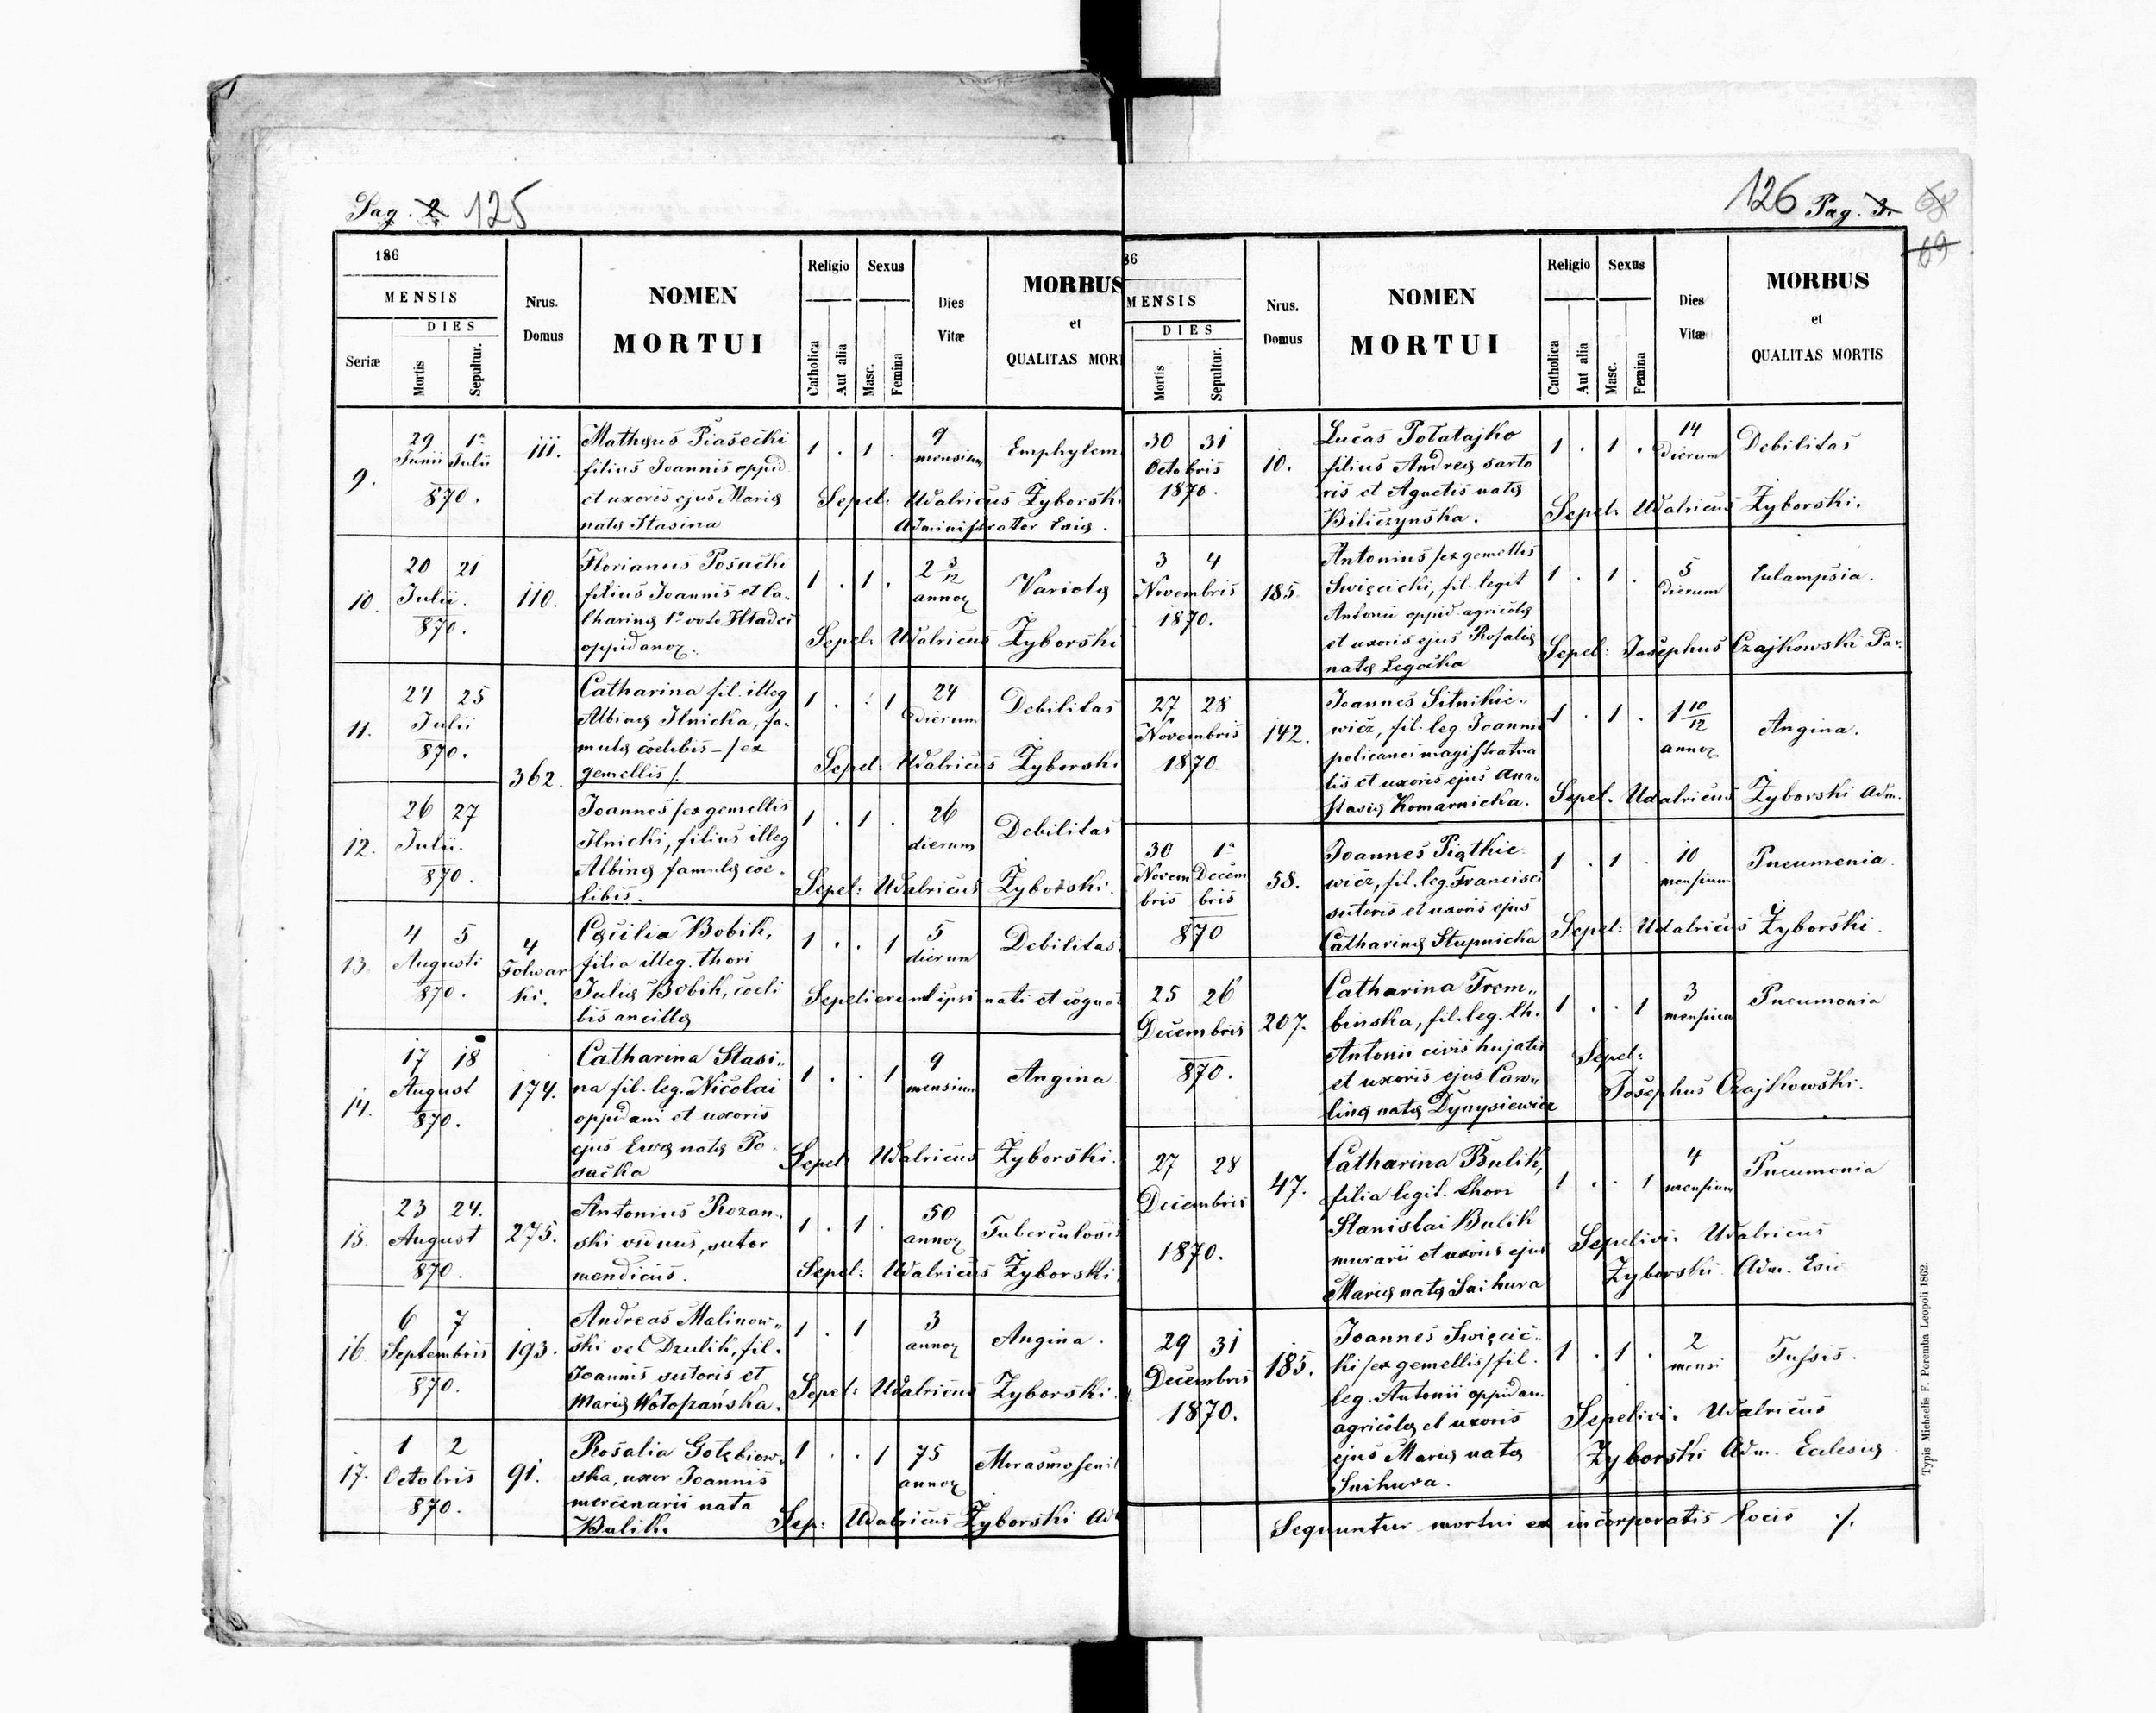 Pag. 2. 125
186
MENSIS
DIES
Seriæ
Mortis
Sepultur.
Nrus.
Domus
NOMEN
MORTUI
Religio
Catholica
Aut alia
Sexus
Masc.
Femina
Dies
Vitæ
MORBUS
et
QUALITAS MORT
9.
29 1a
Junii Julii
870.
111.
Matheus Piasecki
filius Joannis oppid.
et uxoris ejus Mariæ
natæ Stasina
1 . 1 .
9
mensium
Emphylem
Sepel: Udalricus Żyborski
Administrator Ecciæ.
10.
20 21
Julii.
870.
110.
Florianus Posacki
filius Joannis et Ca-
tharinæ 1o voto Hładci
oppidanor.
1 . 1 .
2 3/12
annor
Variolæ
Sepel: Udalricus Żyborski
11.
24 25
Julii
870.
362.
Catharina fil. illeg
Albinæ Ilnicka, fa-
mulæ coelibis - /ex
gemellis/.
1 . . 1
24
dierum
Debilitas
Sepel: Udalricus Żyborski
12.
26 27
Julii.
870.
Joannes /ex gemellis
Ilnicki, filius illeg
Albinæ famulæ coe-
libis.
1 . 1 .
26
dierum
Debilitas
Sepel: Udalricus Żyborski.
13.
4 5
Augusti
870.
4
Folwar
ki.
Cæcilia Bobik,
filia illeg. thori
Juliæ Bobik, coeli
bis ancillæ
1 . . 1
5
dierum
Debilitas.
Sepelierunt ipsi nati et cogna
14.
17 18
August
870.
174.
Catharina Stasi-
na fil. leg. Nicolai
oppidani et uxoris
ejus Evæ natæ Po-
sacka
1 . . 1
9
mensium
Angina
Sepel: Udalricus Żyborski.
15.
23 24.
August
870.
275.
Antonius Rozan-
ski viduus, sutor
mendicus.
1 . 1 .
50
annor
Tuberculosis
Sepel: Udalricus Żyborski.
16.
6 7
Septembris
870.
193.
Andreas Malinow-
ski vel Dzulik, fil.
Joannis sutoris et
Mariæ Wołoszańska.
1 . 1
3
annor
Angina.
Sepel: Udalricus Żyborski.
17.
1 2
Octobris
870.
91.
Rosalia Gołębiow-
ska, uxor Joannis
mercenarii nata
Bulik.
1 . . 1
75
annor
Marasmo senil
Sep: Udalricus Żyborski Ad
126 Pag. 3. 68
69
86
MENSIS
DIES
Mortis
Sepultur.
Nrus.
Domus
NOMEN
MORTUI
Religio
Catholica
Aut alia
Sexus
Masc.
Femina
Dies
Vitæ
MORBUS
et
QUALITAS MORTIS
30 31
Octobris
1870.
10.
Lucas Potatajko
filius Andreæ sarto
ris et Agnetis natæ
Biliczyńska.
1 . 1 .
14
dierum
Debilitas
Sepel. Udalricus Żyborski.
3 4
Novembris
1870.
185.
Antonius /ex gemellis
Swięcicki, fil. legit
Antonii oppid. agricolæ
et uxoris ejus Rosaliæ
natæ Legocka
1 . 1 .
5
dierum
Eulampsia.
Sepel: Josephus Czajkowski Par.
27 28
Novembris
1870.
142.
Joannes Sitnikie-
wicz, fil. leg. Joannis
policanei magistratua
lis et uxoris ejus Ana-
stasiæ Komarnicka.
1 . 1 .
1 10/12
annor
Angina.
Sepel. Udalricus Żyborski Adm.
30 1a
Novem Decem
bris bris
870
58.
Joannes Piątkie-
wicz, fil. leg. Francisci
sutoris et uxoris ejus
Catharinæ Stupnicka
1 . 1 .
10
mensium
Pneumonia.
Sepel: Udalricus Żyborski.
25 26
Decembris
870.
207.
Catharina Trem-
binska, fil. leg. th.
Antonii civis hujatis
et uxoris ejus Caro-
linæ natæ Dynysiewicz
1 . . 1
3
mensium
Pneumonia
Sepel:
Josephus Czajkowski.
27 28
Decembris
1870.
47.
Catharina Bulik,
filia legit. thori
Stanislai Bulik
murarii et uxoris ejus
Mariæ natæ Snihura
1 . . 1
4
mensium
Pneumonia
Sepelivi. Udalricus
Żyborski Adm. Ecci
29 31
Decembris
1870.
185.
Joannes Swięcic-
ki /ex gemellis/ fil.
leg. Antonii oppidan.
agricolæ et uxoris
ejus Mariæ natæ
Snihura.
1 . 1 .
2
mensi
Tussis.
Sepelivi. Udalricus
Żyborski Adm. Eclesiæ
Sequuntur mortui ex incorporatis locis ./.
Typis Michaelis F. Poremba Leopoli 1862.